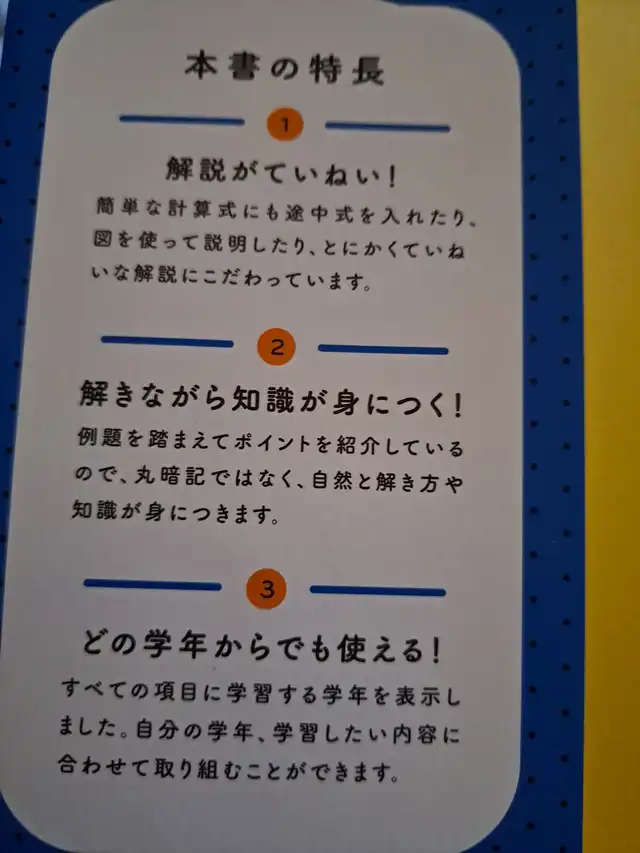 本書の特長
1
解説がていねい!
簡単な計算式にも途中式を入れたり、
図を使って説明したり、とにかくていね
いな解説にこだわっています。
2
解きながら知識が身につく!
例題を踏まえてポイントを紹介している
ので、丸暗記ではなく、自然と解き方や
知識が身につきます。
3
どの学年からでも使える!
すべての項目に学習する学年を表示し
ました。自分の学年、学習したい内容に
合わせて取り組むことができます。